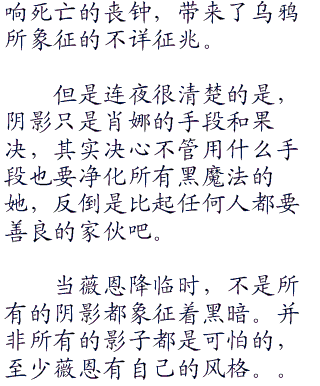 响死亡的丧钟，带来了乌鸦
所象征的不详征兆。
但是连夜很清楚的是，
阴影只是肖娜的手段和果
决，其实决心不管用什么手
段也要净化所有黑魔法的
她，反倒是比起任何人都要
善良的家伙吧。
当薇恩降临时，不是所
有的阴影都象征着黑暗。并
非所有的影子都是可怕的，
至少薇恩有自己的风格。。